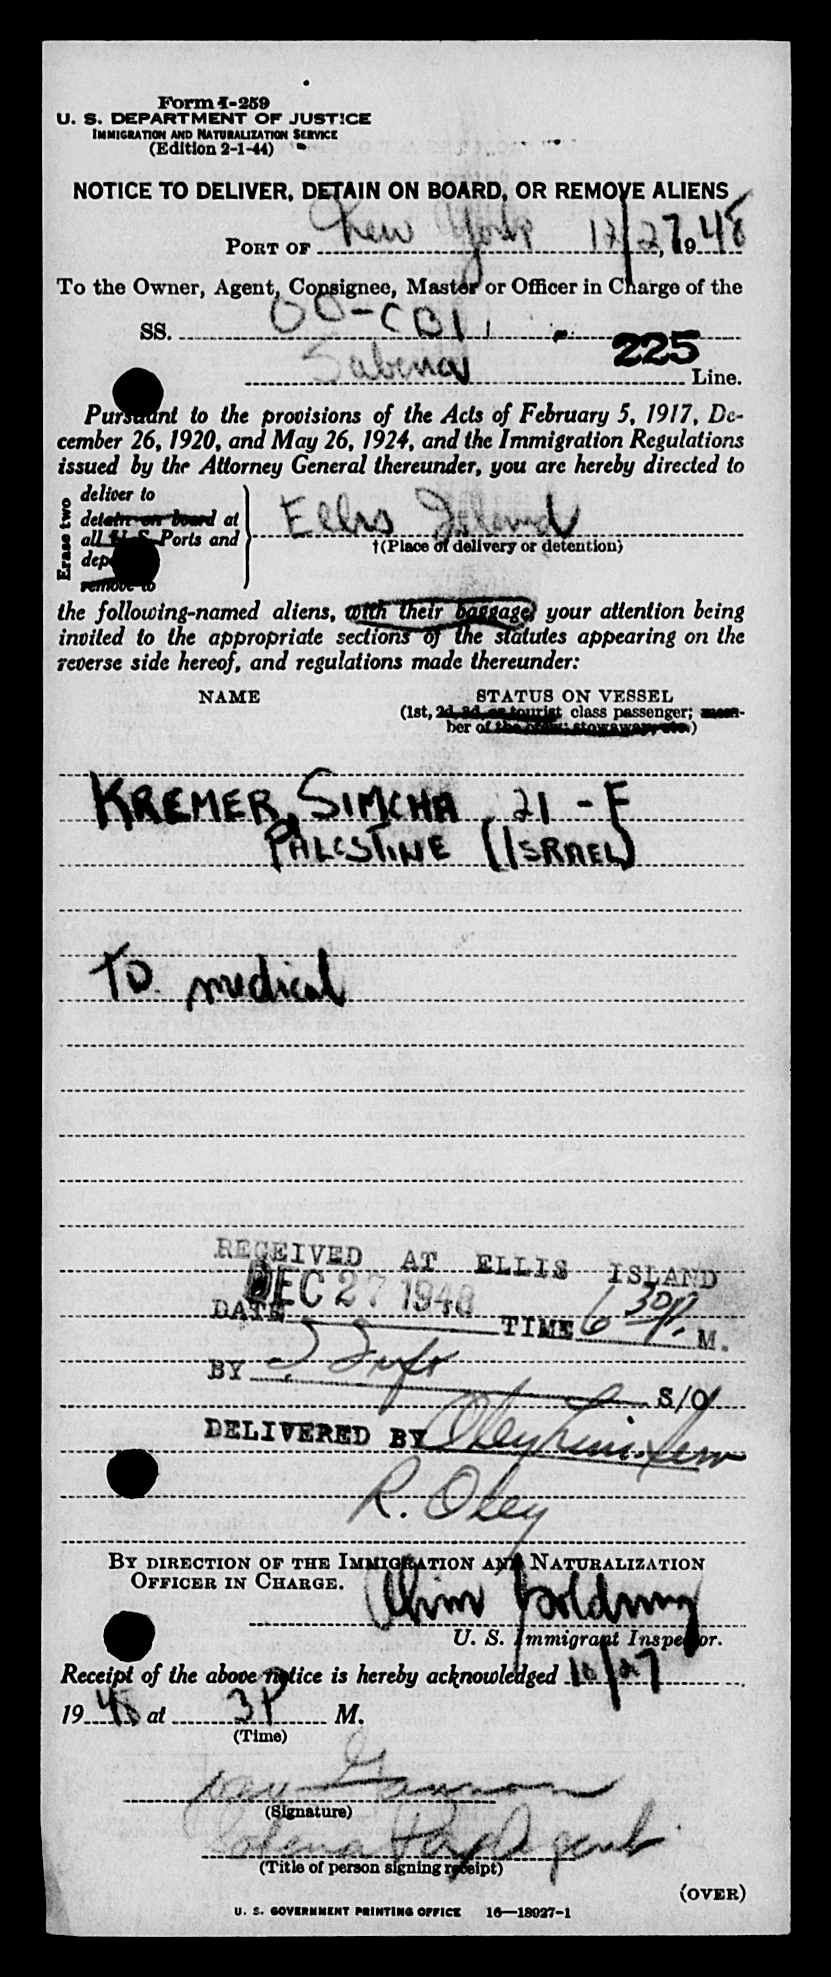 Form I-259
U. S. DEPARTMENT OF JUSTICE
IMMIGRATION AND NATURALIZATION SERVICE
(Edition 2-1-44)
NOTICE TO DELIVER, DETAIN ON BOARD, OR REMOVE ALIENS
PORT OF New York 12/27, 1948
To the Owner, Agent, Consignee, Master or Officer in Charge of the
SS. OO-CBI
225
Sabena Line.
Pursuant to the provisions of the Acts of February 5, 1917, De-
cember 26, 1920, and May 26, 1924, and the Immigration Regulations
issued by the Attorney General thereunder, you are hereby directed to
Erase two
deliver to
detain on board at
all U. S. Ports and
remove to
Ellis Island
†(Place of delivery or detention)
the following-named aliens, with their baggage, your attention being
invited to the appropriate sections of the statutes appearing on the
reverse side hereof, and regulations made thereunder:
NAME STATUS ON VESSEL
(1st, 2d, 3d, or tourist class passenger; mem-
ber of the crew; stowaway, etc.)
KREMER, SIMCHA 21 - F
PALESTINE (ISRAEL)
TO medical
RECEIVED AT ELLIS ISLAND
DEC 27 1948
DATE TIME 6 30 P. M.
BY S/O
DELIVERED BY Oley
R. Oley
BY DIRECTION OF THE IMMIGRATION AND NATURALIZATION
OFFICER IN CHARGE.
U. S. Immigrant Inspector.
Receipt of the above notice is hereby acknowledged 12/27
1948 at 3P M.
(Time)
(Signature)
Sabena Agent
(Title of person signing receipt)
(OVER)
U. S. GOVERNMENT PRINTING OFFICE 16—18927-1